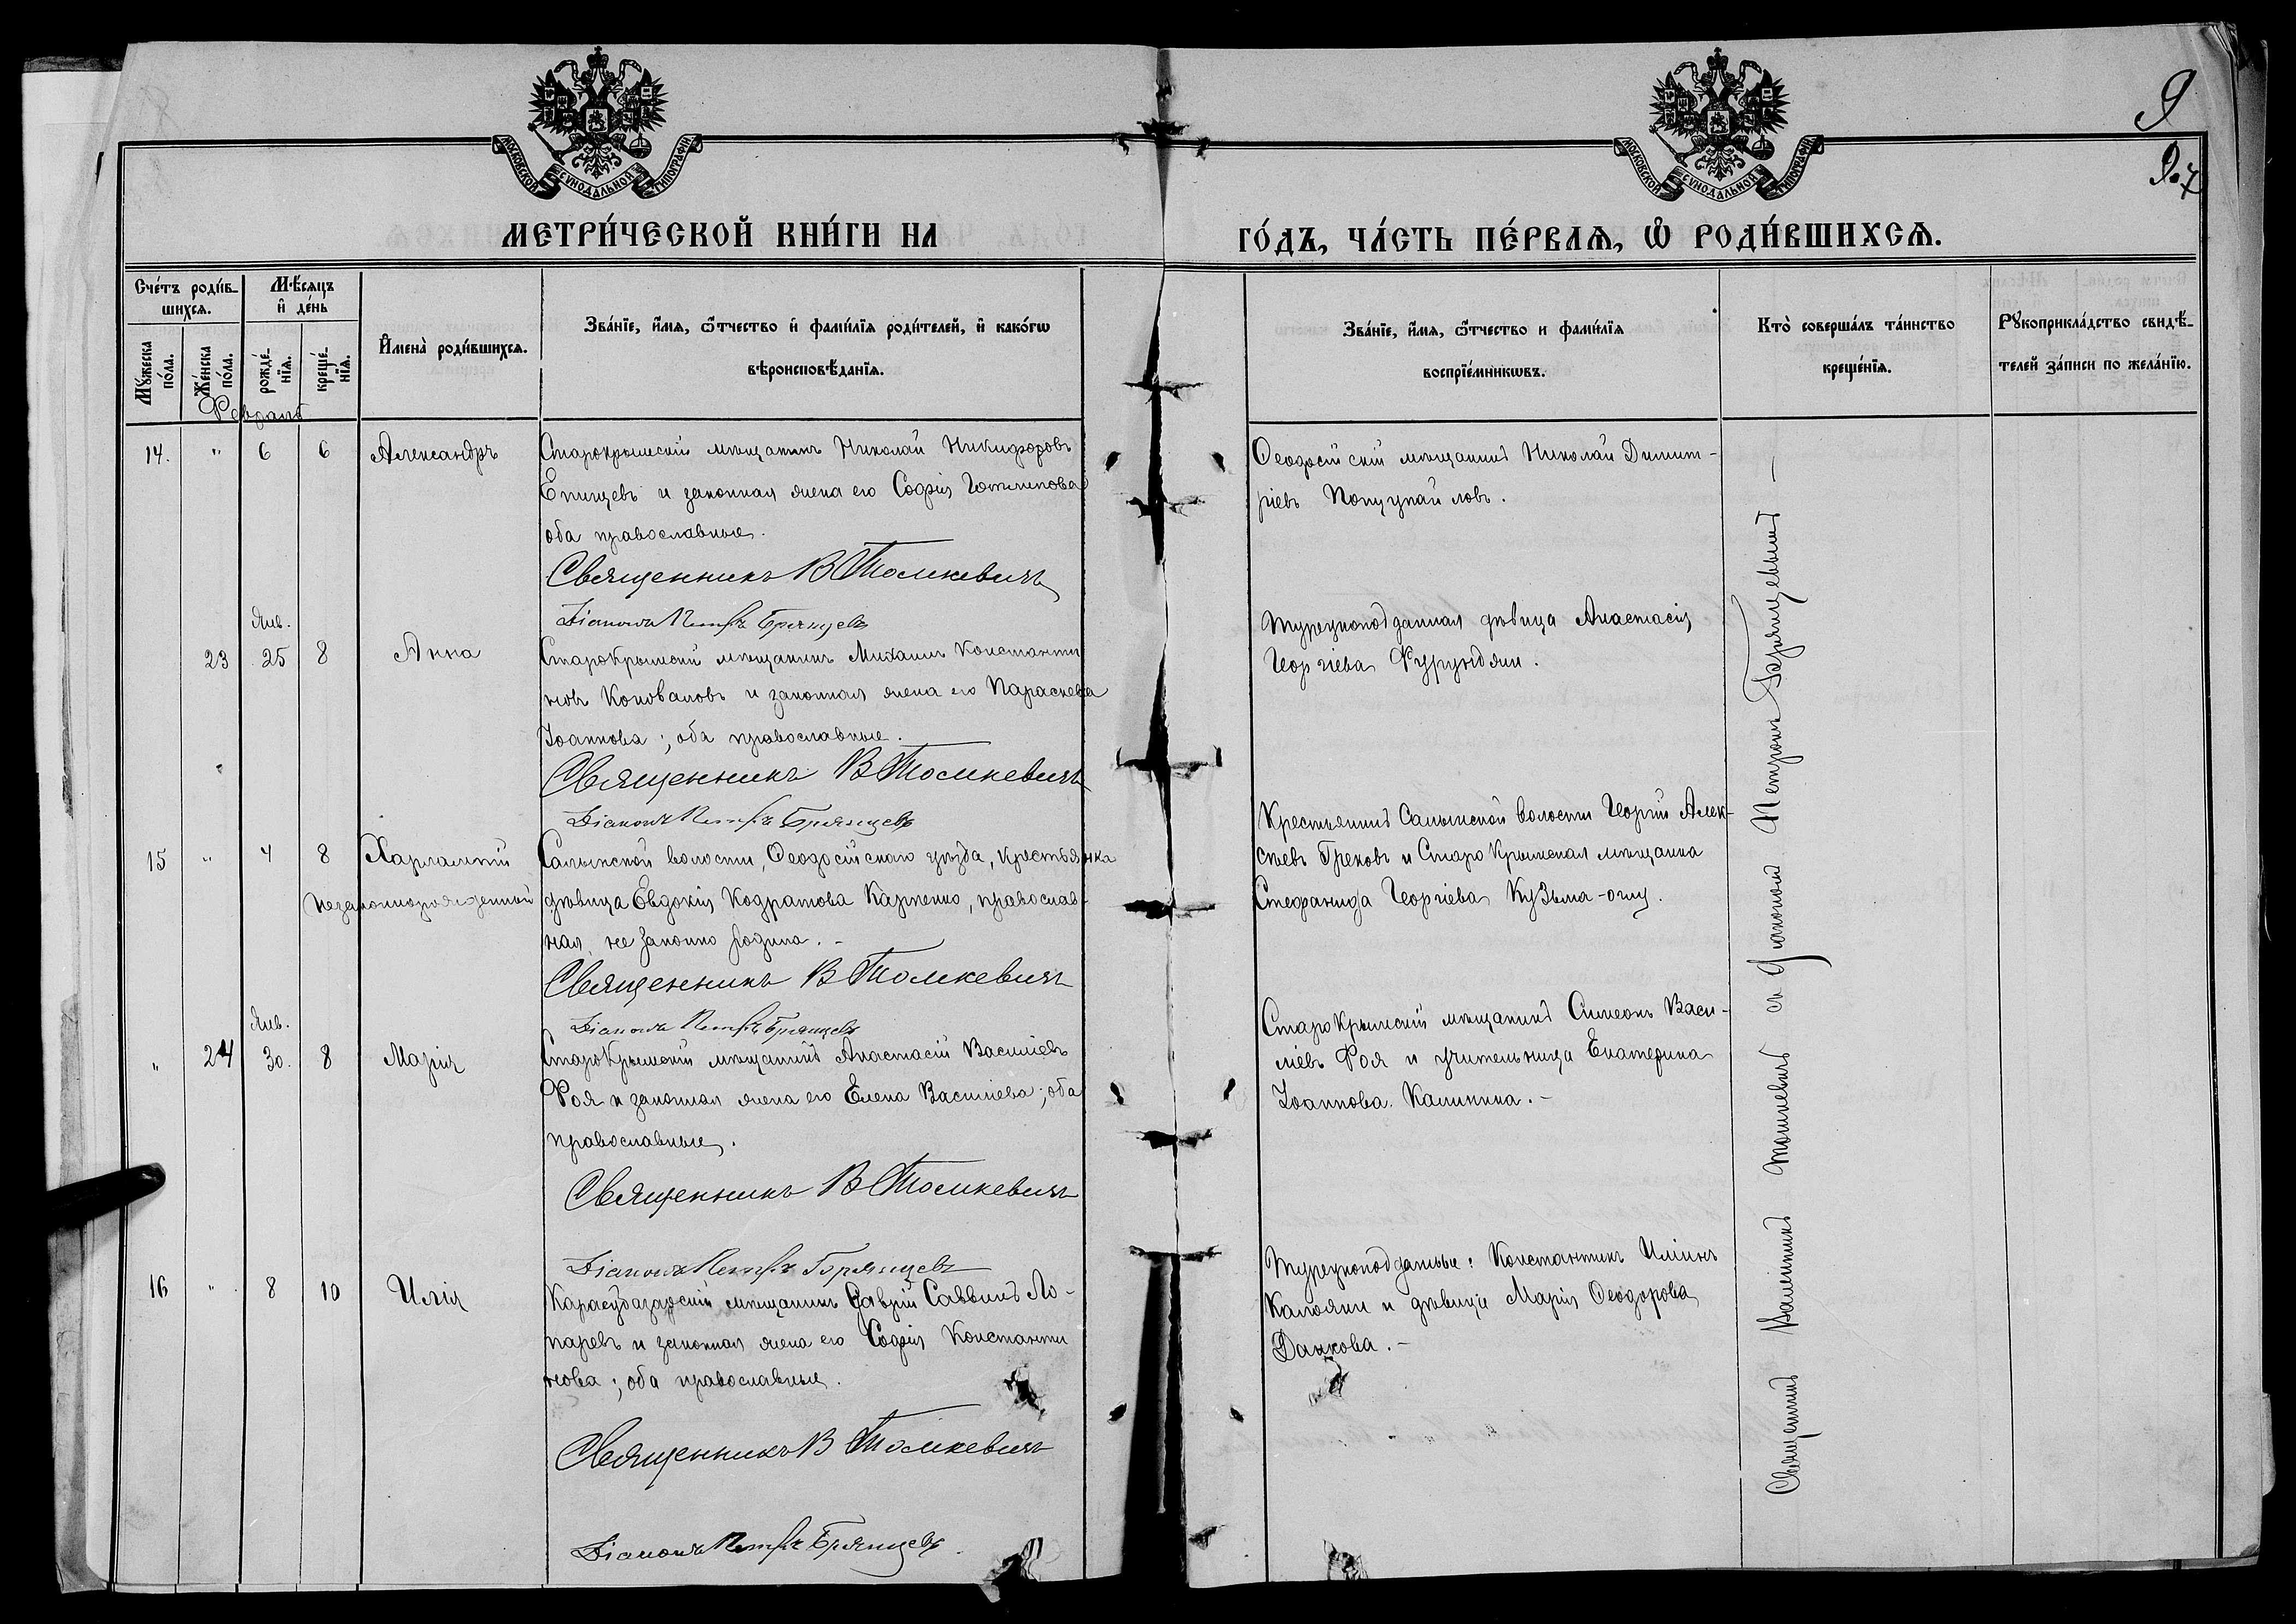 9
9.
МОСКОВСКОЙ СѴНОДАЛЬНОЙ ТИПОГРАФІИ
МОСКОВСКОЙ СѴНОДАЛЬНОЙ ТИПОГРАФІИ
МЕТРИ́ЧЕСКОЙ КНИ́ГИ НА ГО́ДЪ, ЧА́СТЬ ПЕ́РВАѦ, Ѽ РОДИ́ВШИХСѦ.
Сче́тъ роди́в-
шихсѧ.
Мѣ́сѧцъ
и҆ де́нь
Мꙋ́жеска
по́ла.
Же́нска
по́ла.
рожде́-
нїѧ.
креще́-
нїѧ.
И҆мена̀ роди́вшихсѧ.
Зва́нїе, и҆́мѧ, ѻ҆́тчество и҆ фами́лїѧ роди́телей, и҆ како́гѡ
вѣроисповѣ́данїѧ.
Зва́нїе, и҆́мѧ, ѻ҆́тчество и фами́лїѧ
воспрїе́мникѡвъ.
Кто̀ соверша́лъ та́инство
креще́нїѧ.
Рꙋкоприкла́дство свидѣ́-
телей за́писи по жела́нїю.
Февраль
14. " 6 6 Александръ
Старокрымскій мѣщанинъ Николай Никифоровъ
Епищевъ и законная жена его Софія
оба православные.
Священникъ В Томкевичъ
Діаконъ Петръ Брянцевъ
Ѳеодосійскій мѣщанинъ Николай Димит-
ріевъ
Янв.
23 25 8 Анна
СтароКрымскій мѣщанинъ Михаилъ Константи
новъ Коновалов и законная жена его Параскева
Іоаннова; оба православные.
Священникъ В Томкевичъ
Діаконъ Петръ Брянцевъ
Турецкоподданная дѣвица Анастасія
Георгіева
15 " 4 8 Харлампій
незаконнорожденный
Салынской волости, Ѳеодосійскаго уѣзда, крестьянка
дѣвица Евдокія Кодратова Карпенко, православ-
ная, не законно родила. -
Священникъ В Томкевичъ
Діаконъ Петръ Брянцевъ
Крестьянинъ Салынской волости Георгій Алек-
сѣевъ Грековъ и СтароКрымская мѣщанка
Стефанида Георгіева Кузьма-оглу.
Янв.
" 24 30. 8 Марія
СтароКрымскій мѣщанинъ Анастасій Василіевъ
Фоя и законная жена его Елена Василіева; оба
православные.
Священникъ В Томкевичъ
Діаконъ Петръ Брянцевъ
СтароКрымскій мѣщанинъ Симеонъ Васи-
ліевъ Фоя и учительница Екатерина
Іоаннова Калинина. -
16 " 8 10 Илія
Карасубазарскій мѣщанинъ Гавріилъ Саввинъ Ло-
паревъ и законная жена его Софія Константи
нова; оба православные.
Священникъ В Томкевичъ
Діаконъ Петръ Брянцевъ.
Турецкоподданные: Константинъ Иліинъ
Калояни и дѣвица Марія Ѳеодорова
Данкова. -
Священникъ Валентинъ Томкевичъ съ Діакономъ Петромъ Брянцевымъ —